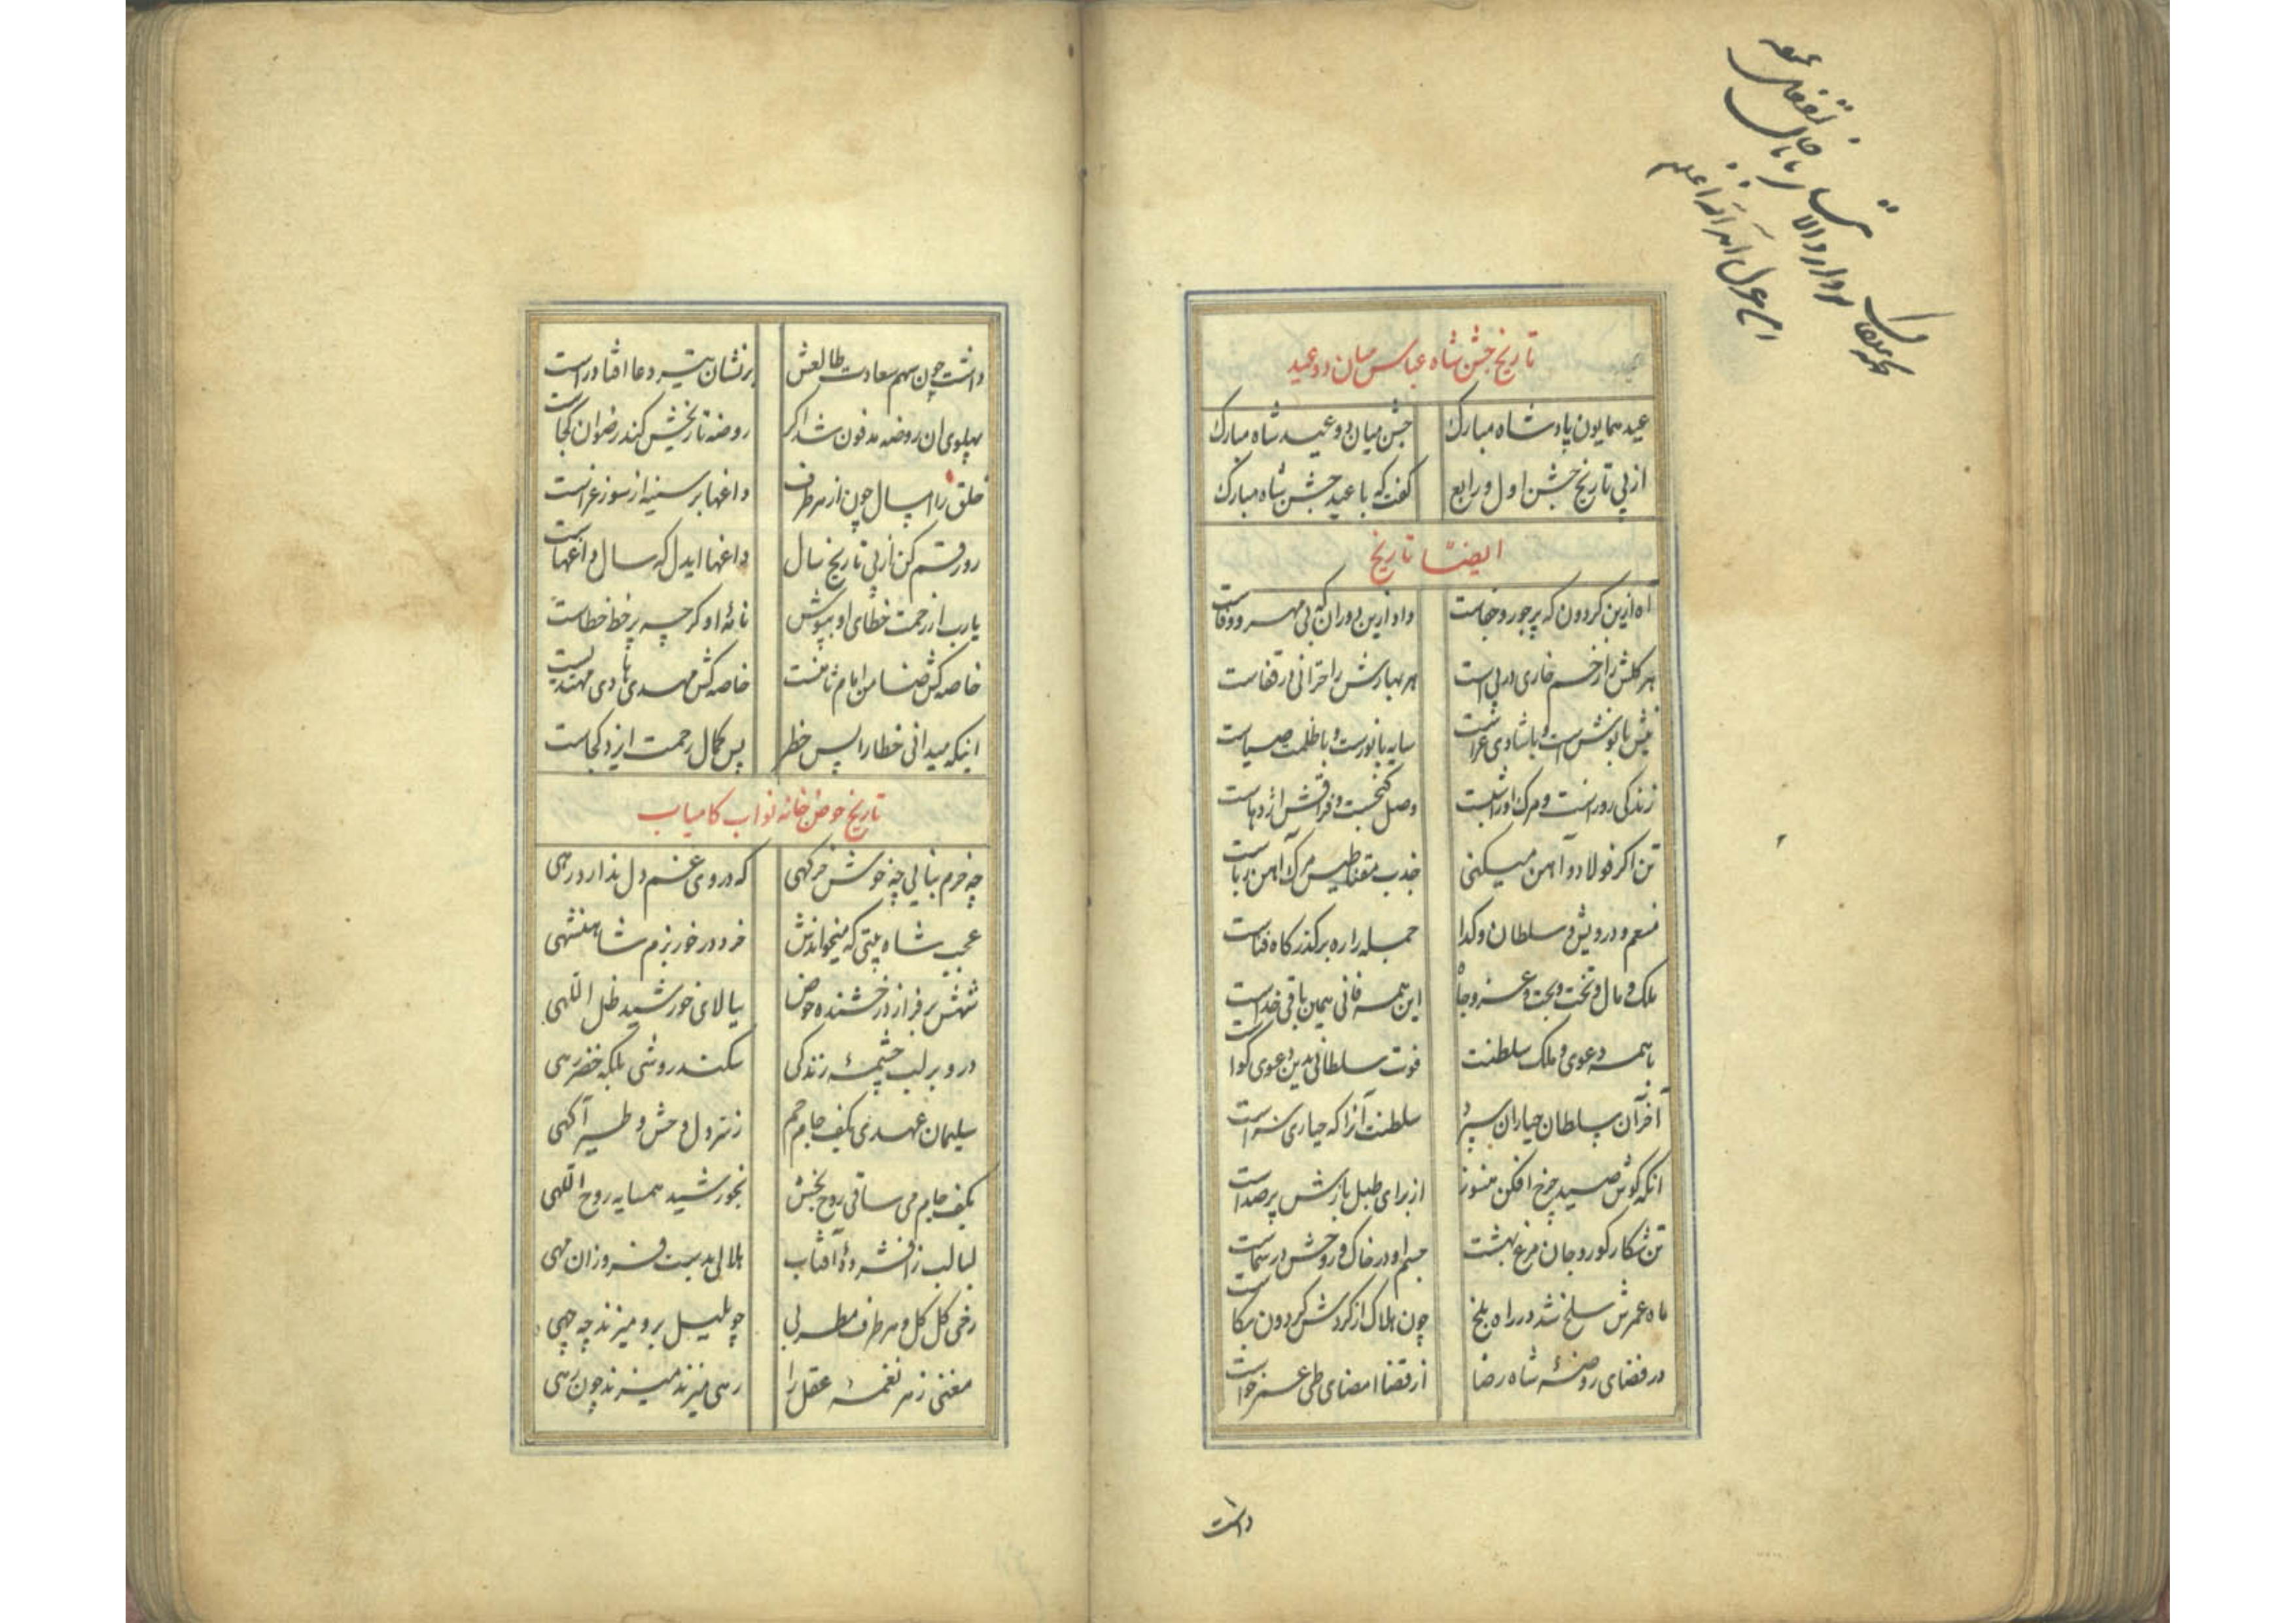 تاریخ جشن شاه عباس میان دو عید
عید همایون پادشاه مبارک جشن میان دو عید شاه مبارک
از پی تاریخ جشن اول و رابع گفت که با عید جشن شاه مبارک
ایضا تاریخ
آه ازین کردون که پر جور و جفاست داد ازین دوران که بی مهر و وفاست
هر کلش را زخم خاری در پی است هر بهارش را خزانی در قفاست
نیش با نوش است و با شادی عزاست سایه با نورست و با ظلمت ضیاست
زندکی روزست و مرک او را شبست وصل کنجست و فراقش اژدهاست
تن اکر فولاد و آهن میکنی جذب مقناطیس مرک آهن رباست
منعم و درویش و سلطان و کدا جمله را ره بر کذرکاه فناست
ملک و مال و تخت و بخت و عز و جاه این همه فانی همین باقی خداست
با همه دعوی ملک سلطنت فوت سلطانی بدین دعوی کواست
آخر آن سلطان جیاران سپرد سلطنت آنرا که جیاری سزاست
آنکه کوش صید چرخ افکن هنوز از برای طبل بازش پر صداست
تن شکار کور و جان مرغ بهشت جسم او در خاک و روحش در سماست
ماه عمرش سلخ شد در راه بلخ چون هلاک از کردش کردون بکاست
در فضای روضهٔ شاه رضا از قضا امضای طی عمر خواست
داشت
داشت چون سهم سعادت طالعش بر نشان تیر دعا افتاد راست
پهلوی آن روضه مدفون شد اکر روضه تاریخش کند رضوان کجاست
خلق را امسال چون از هر طرف داغها بر سینه از سوز عزاست
رو رقم کن از پی تاریخ سال داغها ایدل که سال داغهاست
یارب از رحمت خطای او بپوش نامهٔ او کرچه پر خط خطاست
خاصه کش ضامن امام ثامنست خاصه کش مهدی هادی مهتدیست
اینکه میدانی خطا را پس خطر پس کمال رحمت ایزد کجاست
تاریخ حوض خانه نواب کامیاب
چه خرم بنایی چه خوش خرکهی که در وی غم دل ندارد رهی
عجب شاه بیتی که میخواندش خرد در خور بزم شاهنشهی
شهش بر فراز درخشنده حوض ببالای خورشید ظل اللهی
درو بر لب چشمهٔ زندکی سکندر وشی بلکه خضر رهی
سلیمان عهدی بکف جام جم ز نزول وحش و طیر آکهی
بکف جام می ساقی روح بخش بخورشید همسایه روح اللهی
لبالب ز افشردهٔ آفتاب هلالی بدست فروزان مهی
رخی کل کل و هر طرف مطربی چو بلبل برو میزند چه چهی
مغنی ز هر نغمه عقل را رهی میزند میزند چون رهی